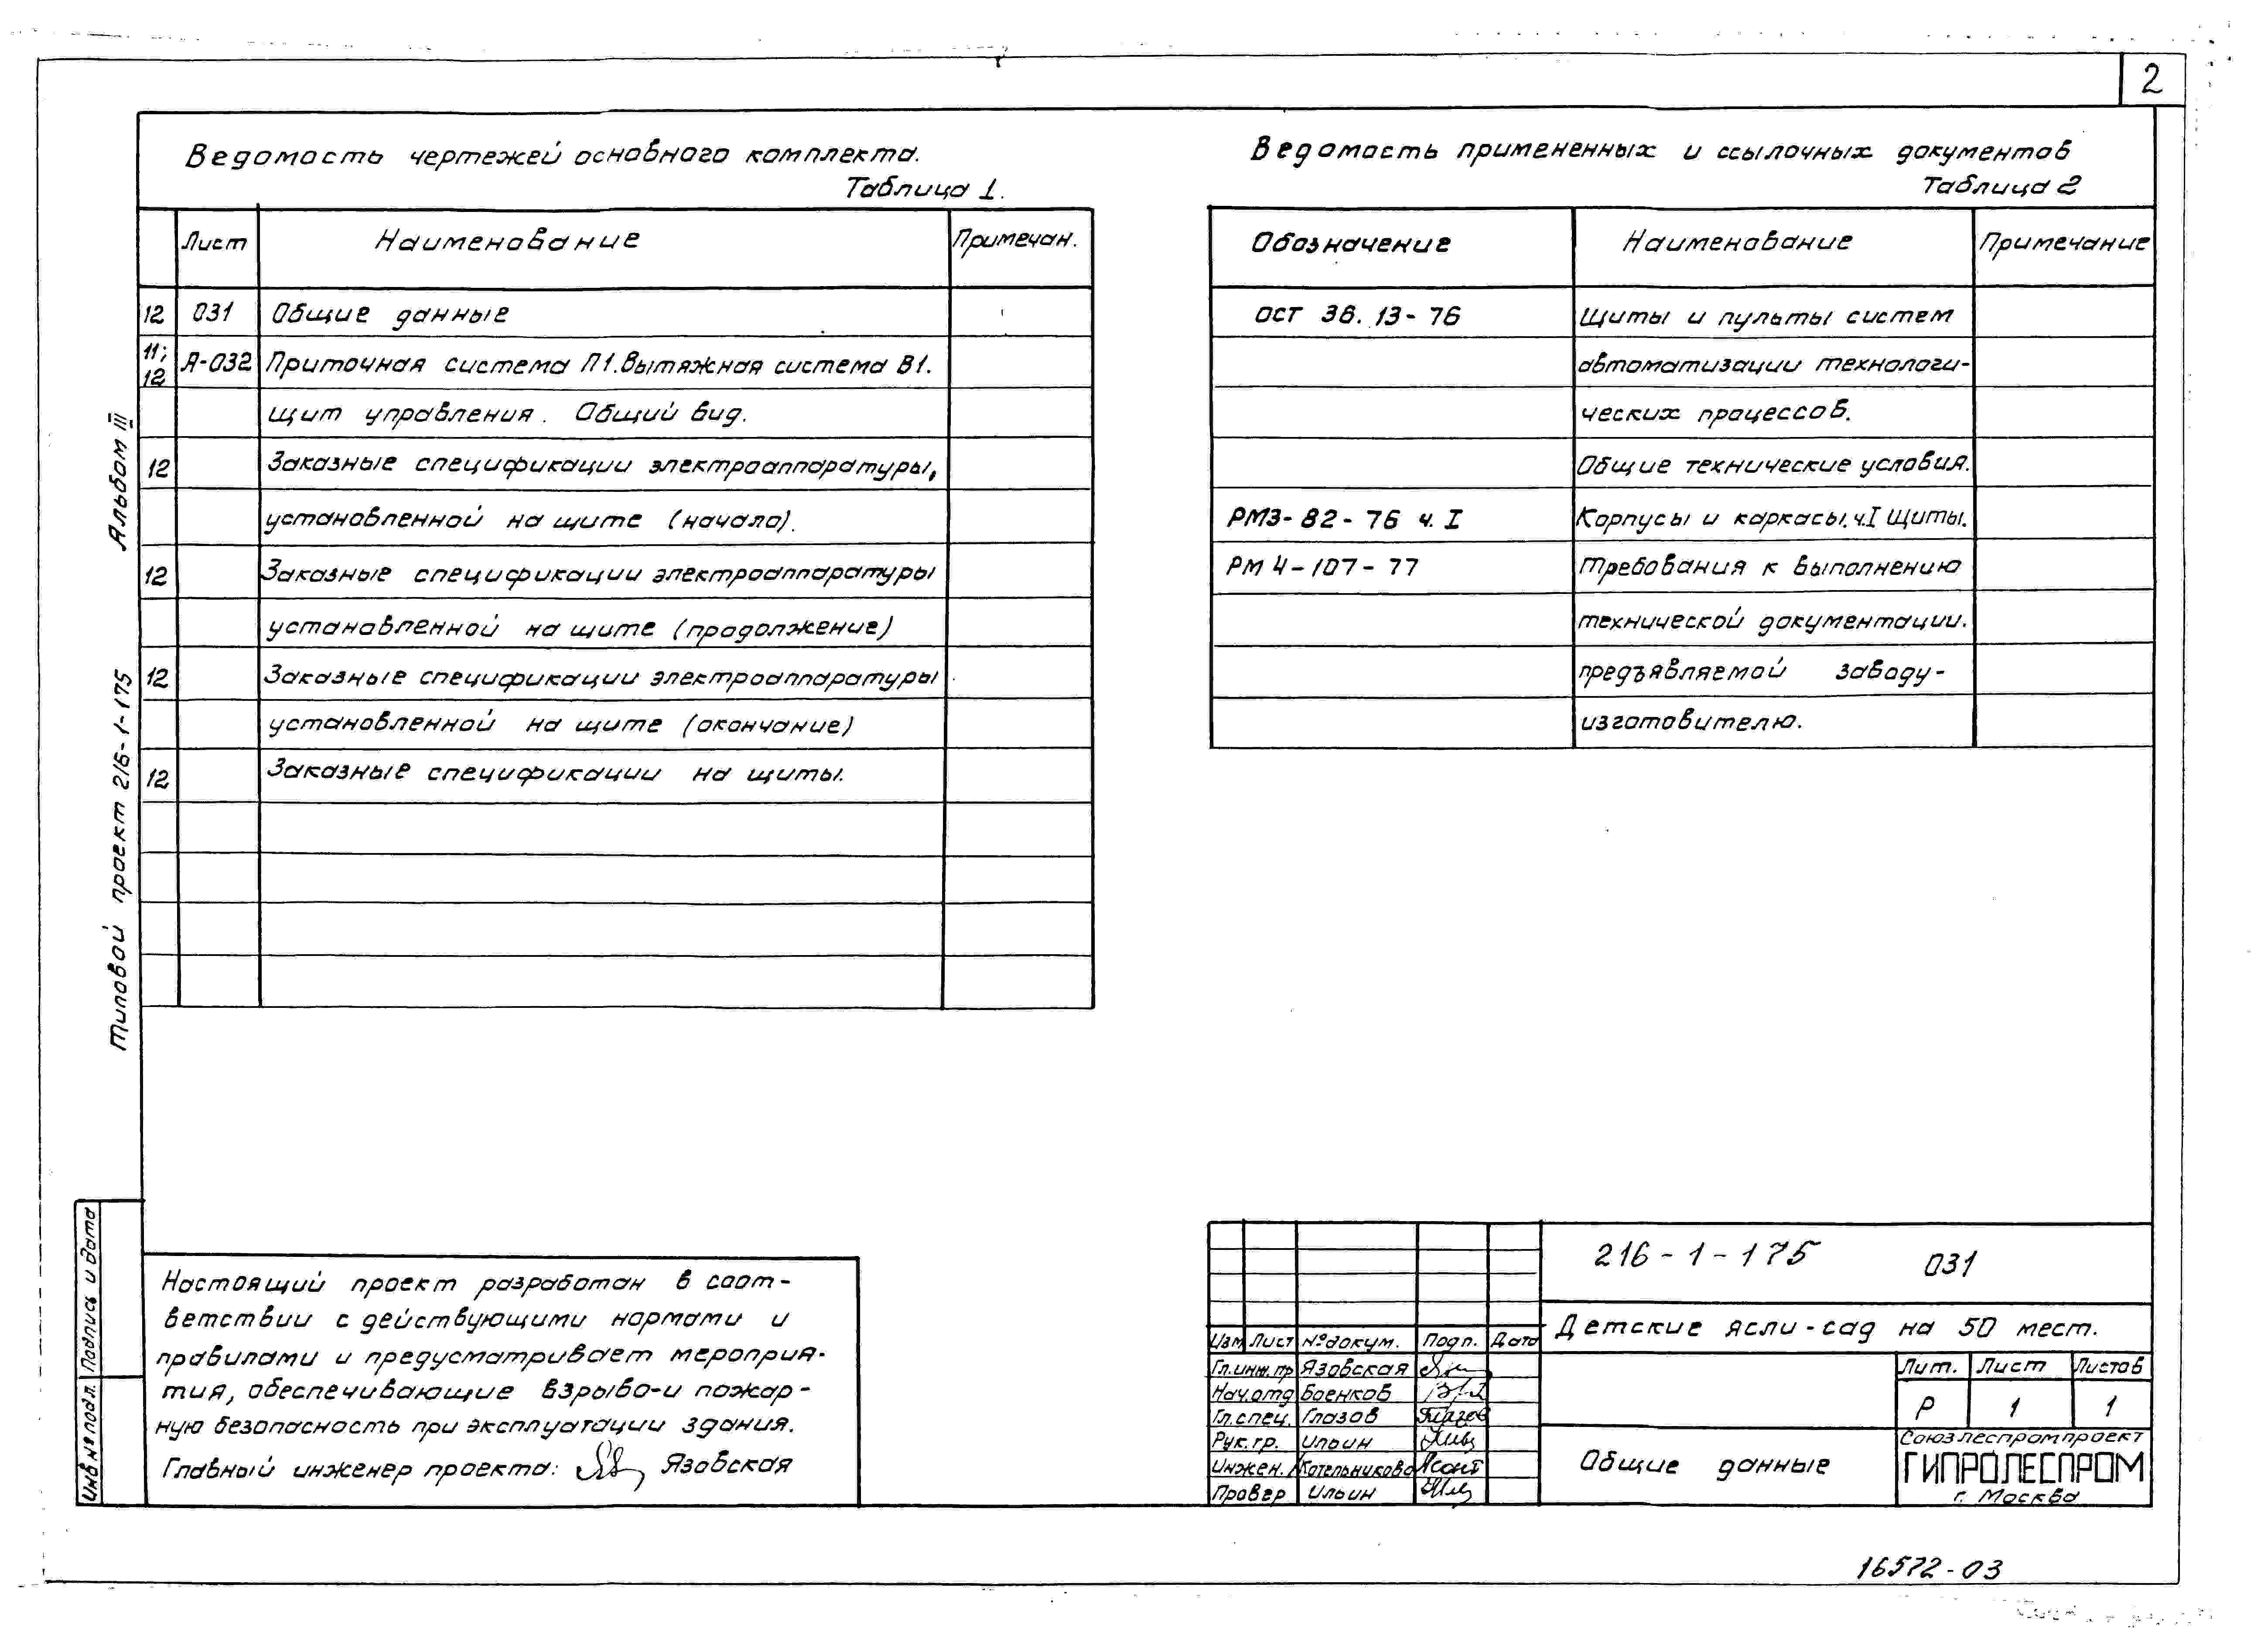 2
Ведомость чертежей основного комплекта.
Таблица 1.
Лист Наименование Примечан.
12 031 Общие данные
11; 12 А-032 Приточная система П1. Вытяжная система В1.
щит управления. Общий вид.
12 Заказные спецификации электроаппаратуры,
установленной на щите (начало).
12 Заказные спецификации электроаппаратуры
установленной на щите (продолжение)
12 Заказные спецификации электроаппаратуры
установленной на щите (окончание)
12 Заказные спецификации на щиты.
Ведомость примененных и ссылочных документов
Таблица 2
Обозначение Наименование Примечание
ОСТ 36.13-76 Щиты и пульты систем
автоматизации технологи-
ческих процессов.
Общие технические условия.
РМ3-82-76 ч. I Корпусы и каркасы. ч. I Щиты.
РМ 4-107-77 Требования к выполнению
технической документации.
предъявляемой заводу-
изготовителю.
Альбом III
Типовой проект 216-1-175
Подпись и дата
Инв № подл.
Настоящий проект разработан в соот-
ветствии с действующими нормами и
правилами и предусматривает мероприя-
тия, обеспечивающие взрыво-и пожар-
ную безопасность при эксплуатации здания.
Главный инженер проекта: Язовская
216-1-175 031
Детские ясли-сад на 50 мест.
Изм Лист № докум. Подп. Дата
Гл.инж.пр Язовская
Нач.отд Боенков
Гл.спец. Глазов
Рук.гр. Ильин
Инжен. Котельникова
Провер Ильин
Лит. Лист Листов
Р 1 1
Общие данные
Союзлеспромпроект
ГИПРОЛЕСПРОМ
г. Москва
16572-03